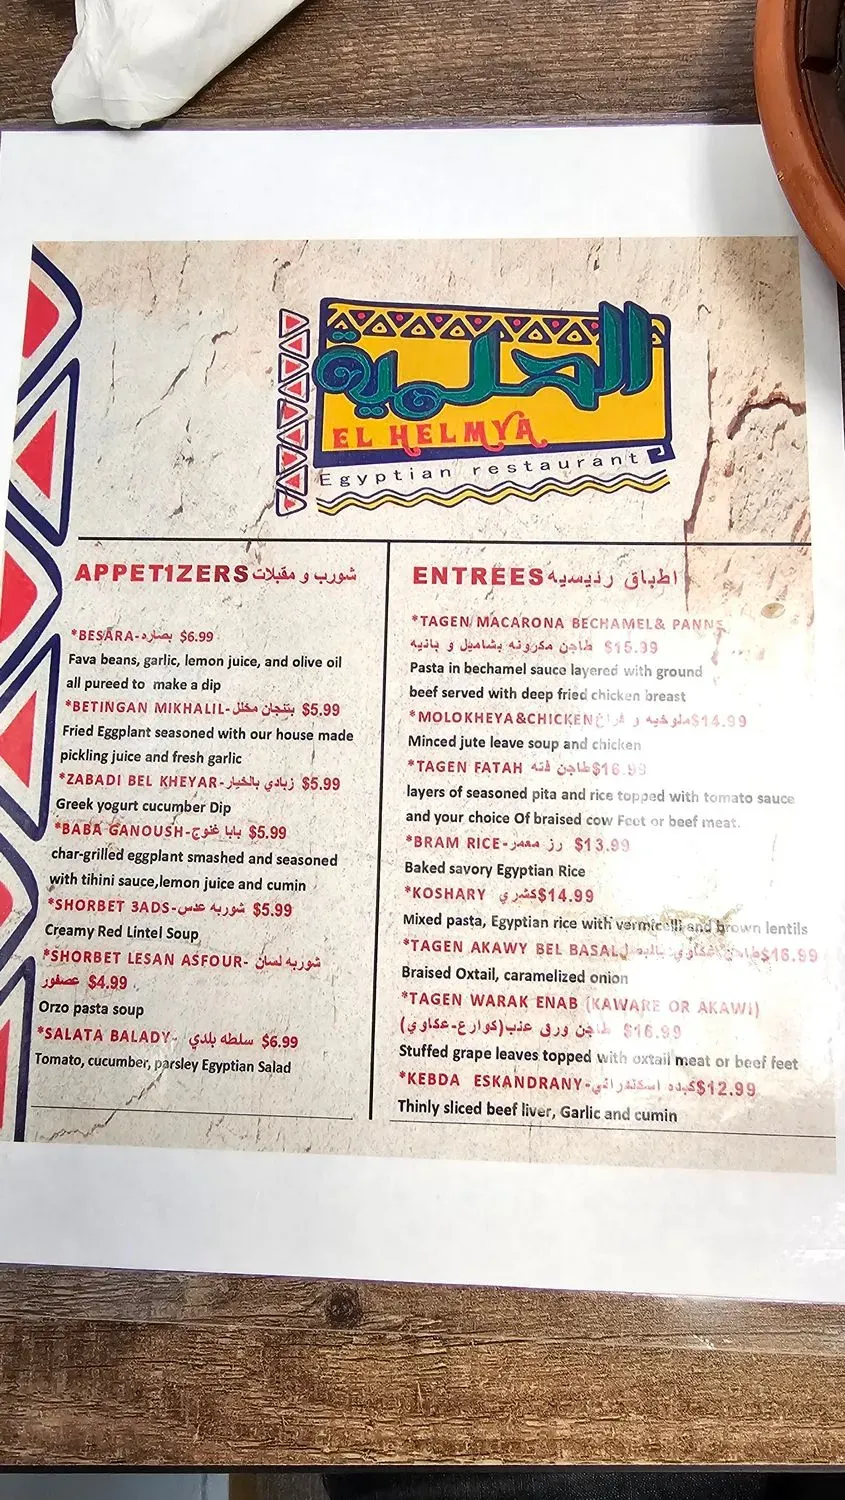 الحلمية
EL HELMYA
Egyptian restaurant
APPETIZERS شورب و مقبلات
*BESARA-بصاره $6.99
Fava beans, garlic, lemon juice, and olive oil
all pureed to make a dip
*BETINGAN MIKHALIL-بتنجان مخلل $5.99
Fried Eggplant seasoned with our house made
pickling juice and fresh garlic
*ZABADI BEL KHEYAR-زبادي بالخيار $5.99
Greek yogurt cucumber Dip
*BABA GANOUSH-بابا غنوج $5.99
char-grilled eggplant smashed and seasoned
with tihini sauce,lemon juice and cumin
*SHORBET 3ADS-شوربه عدس $5.99
Creamy Red Lintel Soup
*SHORBET LESAN ASFOUR- شوربه لسان
عصفور $4.99
Orzo pasta soup
*SALATA BALADY- سلطه بلدي $6.99
Tomato, cucumber, parsley Egyptian Salad
ENTREES اطباق رئيسيه
*TAGEN MACARONA BECHAMEL& PANNE
طاجن مكرونه بشاميل و بانيه $15.99
Pasta in bechamel sauce layered with ground
beef served with deep fried chicken breast
*MOLOKHEYA&CHICKEN ملوخيه و فراخ$14.99
Minced jute leave soup and chicken
*TAGEN FATAH طاجن فته$16.99
layers of seasoned pita and rice topped with tomato sauce
and your choice Of braised cow Feet or beef meat.
*BRAM RICE-رز معمر $13.99
Baked savory Egyptian Rice
*KOSHARY كشري$14.99
Mixed pasta, Egyptian rice with vermicelli and brown lentils
*TAGEN AKAWY BEL BASAL طاجن عكاوي بالبصل$16.99
Braised Oxtail, caramelized onion
*TAGEN WARAK ENAB (KAWARE OR AKAWI)
طاجن ورق عنب(كوارع-عكاوي) $16.99
Stuffed grape leaves topped with oxtail meat or beef feet
*KEBDA ESKANDRANY-كبده اسكندراني$12.99
Thinly sliced beef liver, Garlic and cumin